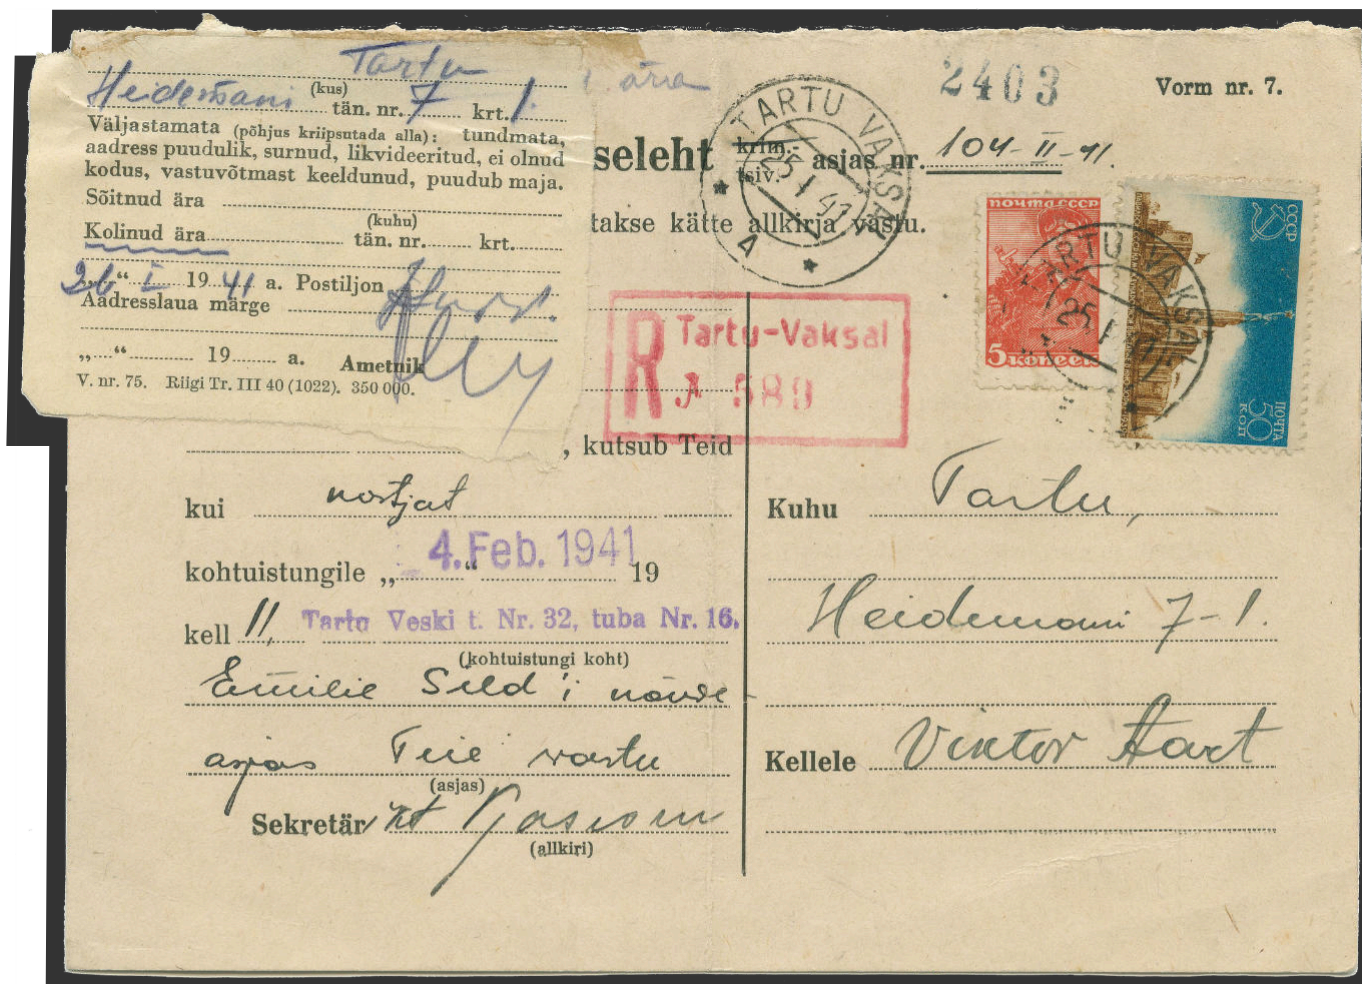 Tartu
(kus)
Heidemani tän. nr. 7 krt. 1.
Väljastamata (põhjus kriipsutada alla): tundmata,
aadress puudulik, surnud, likvideeritud, ei olnud
kodus, vastuvõtmast keeldunud, puudub maja.
Sõitnud ära
(kuhu)
Kolinud ära
tän. nr. krt.
"26" I 1941 a. Postiljon
Aadresslaua märge
„ “ 19 a. Ametnik
V. nr. 75. Riigi Tr. III 40 (1022). 350 000.
ära
2403
Vorm nr. 7.
seleht krim.- tsiv. asjas nr. 104-II-41.
takse kätte allkirja vastu.
TARTU VAKSAL
25 I 41
A
ПОЧТА СССР
5 КОПЕЕК
СССР
ПОЧТА
50
КОП
TARTU VAKSAL
25 I
R Tartu-Vaksal
№ 589
, kutsub Teid
kui
kohtuistungile „ “ 19
4. Feb. 1941
kell 11, Tartu Veski t. Nr. 32, tuba Nr. 16.
(kohtuistungi koht)
Emilie Sild'i nõude
asjas Teie vastu
(asjas)
Sekretär
(allkiri)
Kuhu Tartu,
Heidemani 7-1.
Kellele Viktor Aart